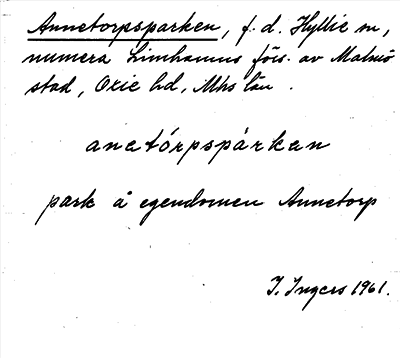 Annetorpsparken, f. d. Hyllie sn,
numera Limhamns förs. av Malmö
stad, Oxie hd, Mhs län.
anetórpspárken
park å egendomen Annetorp
I. Ingers 1961.